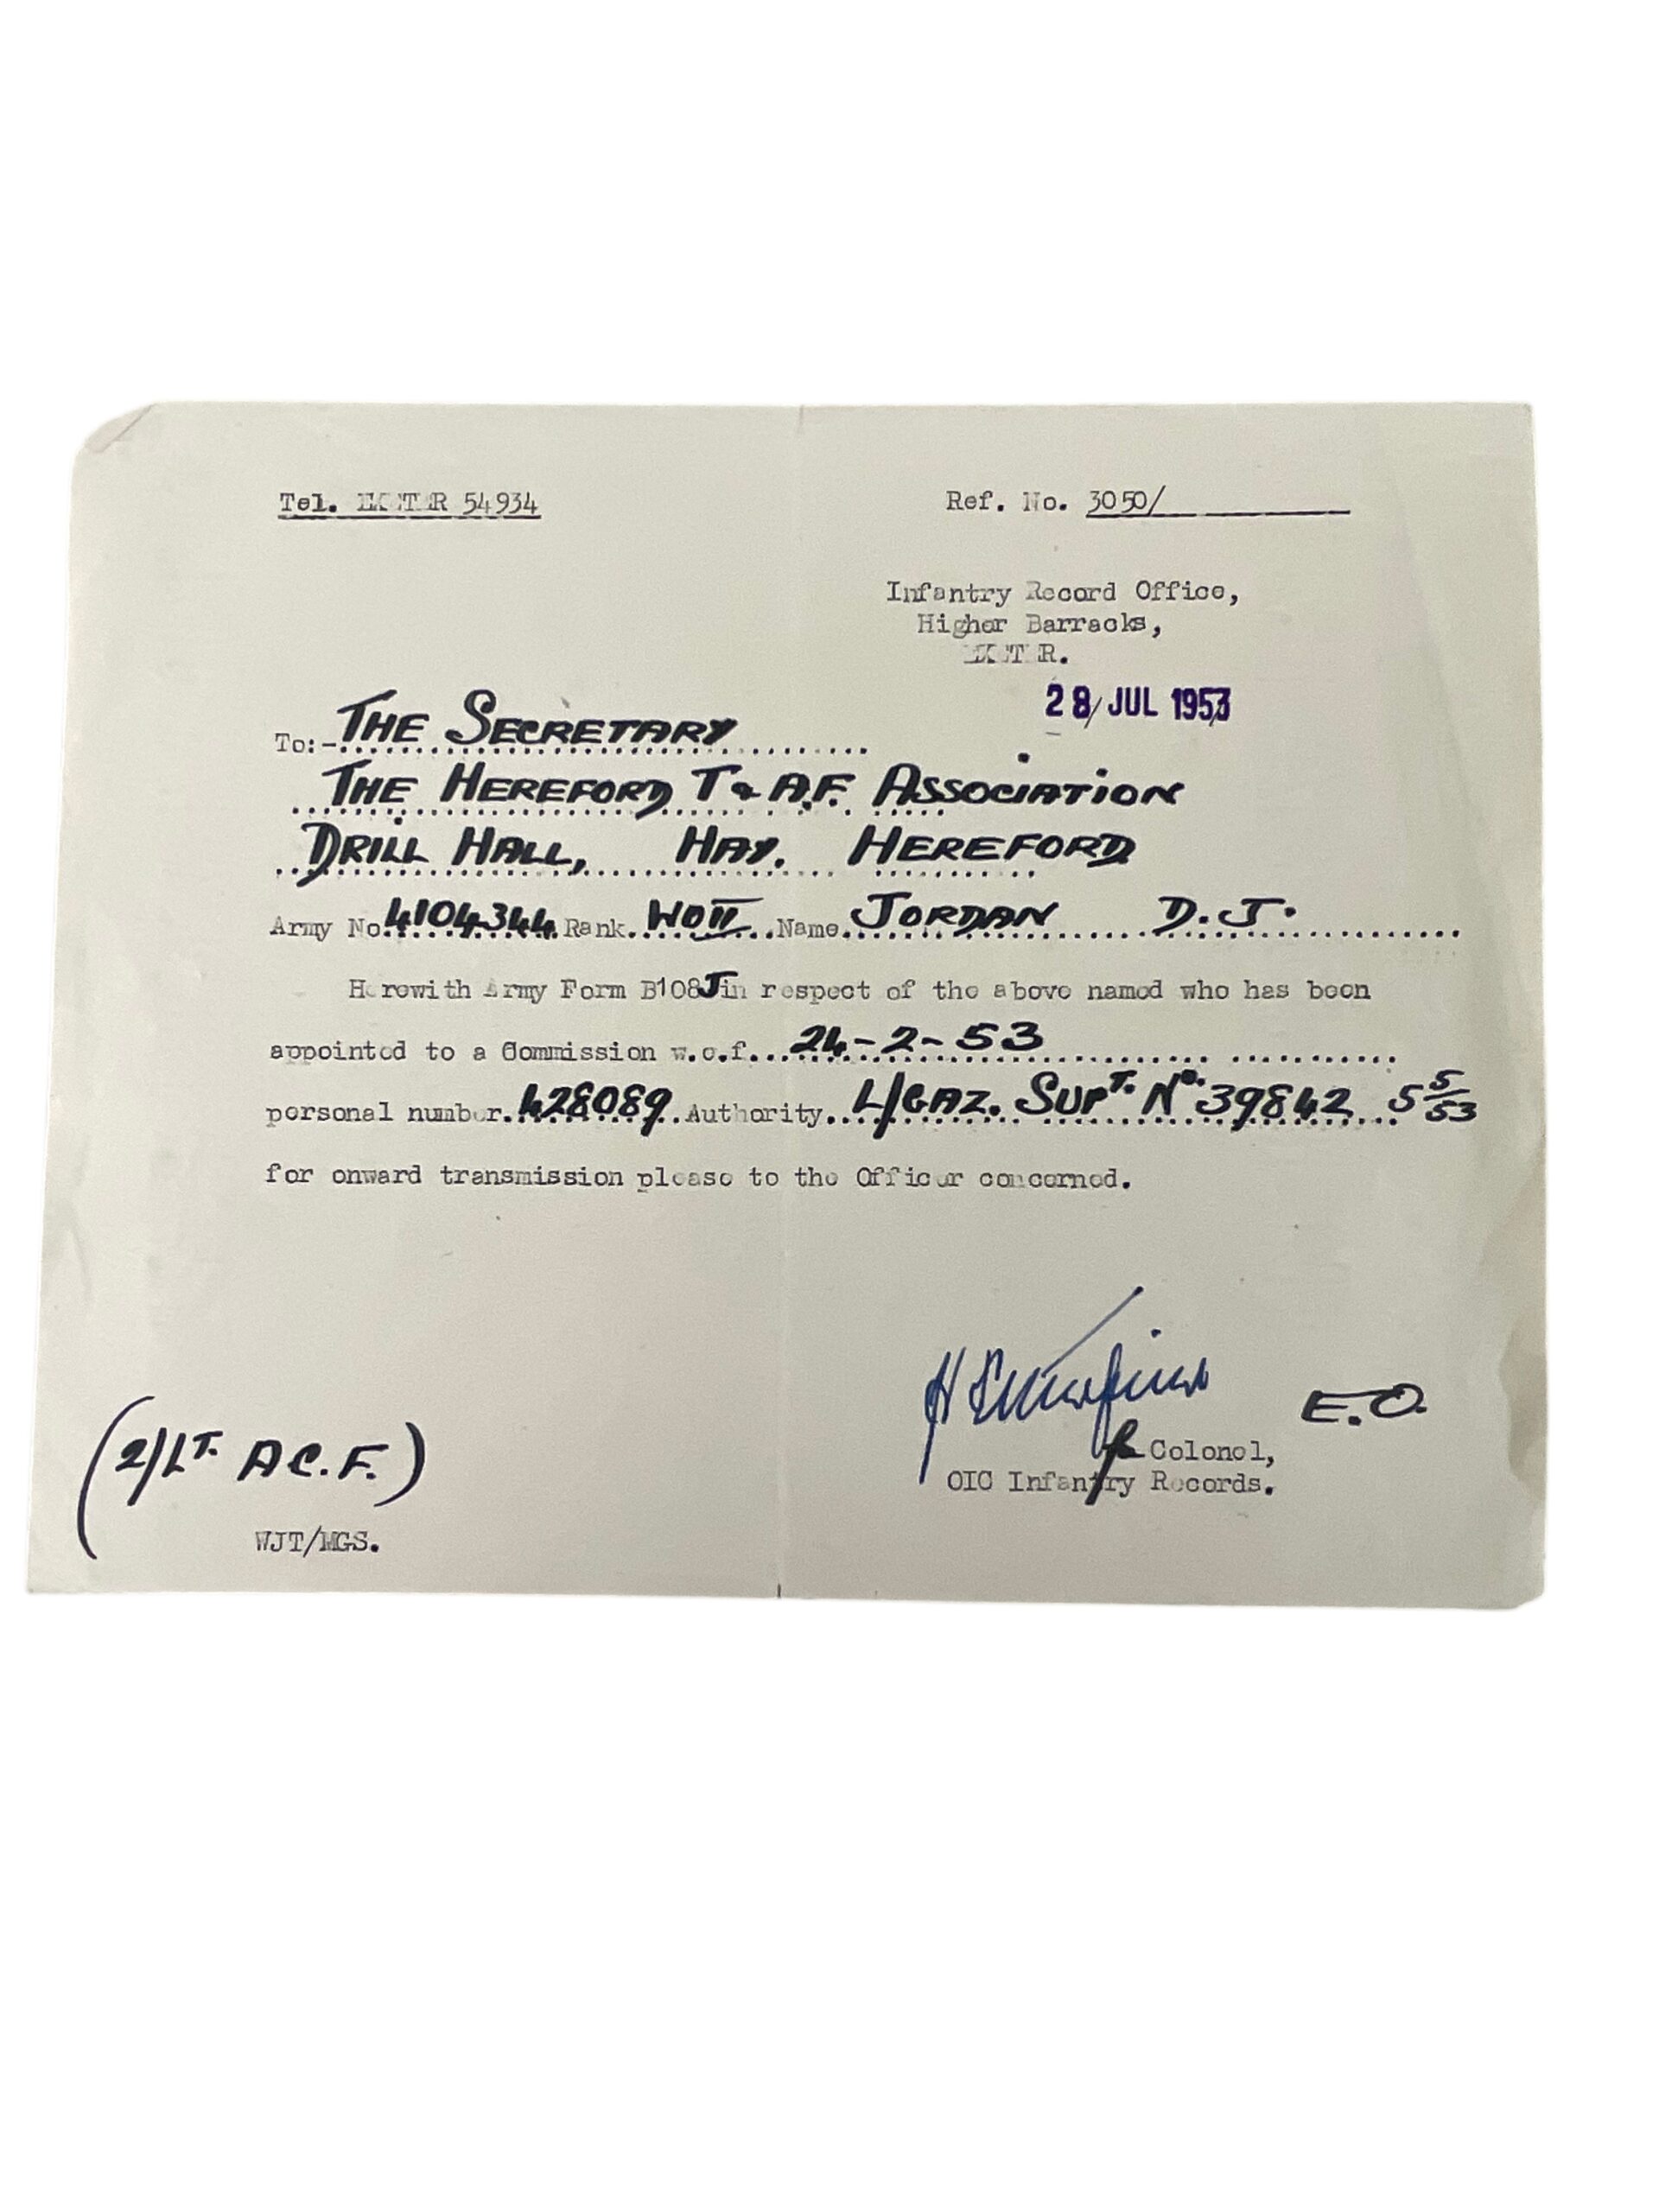 Tel. EXETER 54934 Ref. No. 3050/
Infantry Record Office,
Higher Barracks,
EXETER.
28 JUL 1953
To:- THE SECRETARY
THE HEREFORD T & A.F. ASSOCIATION
DRILL HALL, HAY. HEREFORD
Army No. 4104344 Rank. WOII Name. JORDAN D.J.
Herewith Army Form B108J in respect of the above named who has been
appointed to a Commission w.e.f. 24-2-53
personal number. 428089 Authority. L/GAZ. SUPT. No. 39842 5 5/53
for onward transmission please to the Officer concerned.
E.O.
(2/LT. A.C.F.) Colonel,
OIC Infantry Records.
WJT/MGS.